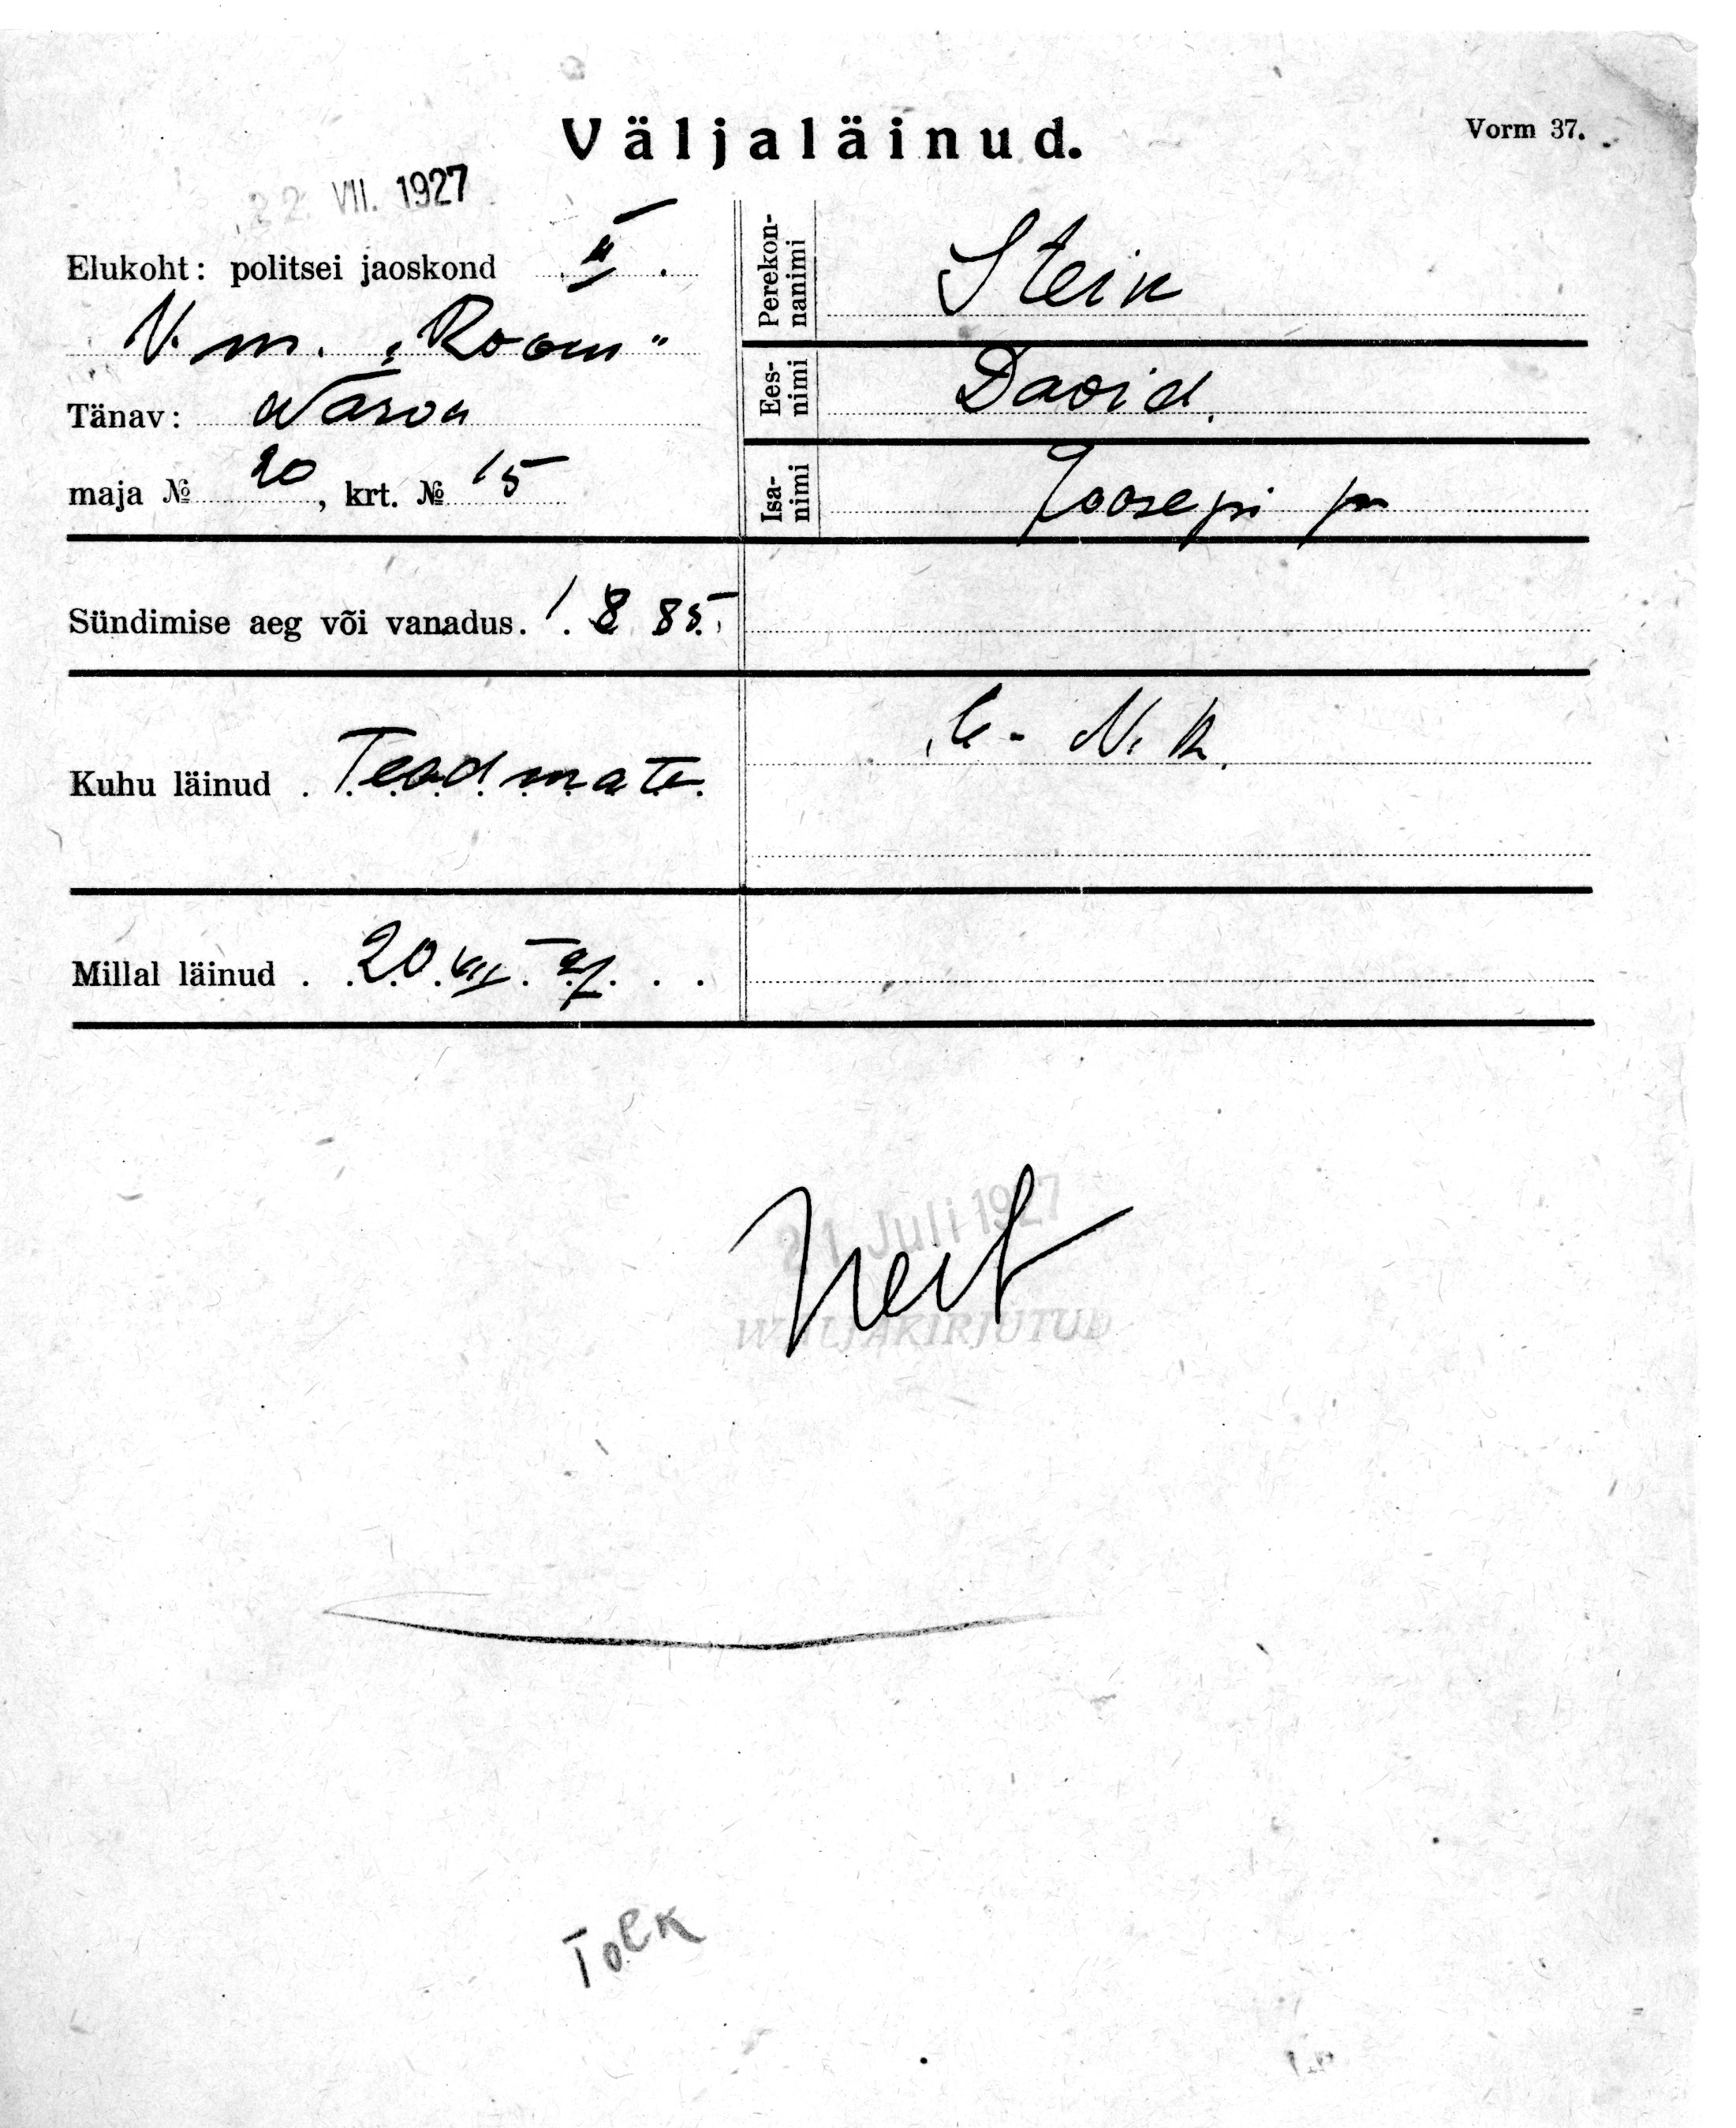 Väljaläinud.
Vorm 37.
22. VII. 1927
Elukoht: politsei jaoskond II.
V. m. „Room“
Tänav: Narva
maja № 20, krt. № 15
Perekon-
nanimi
Stein
Ees-
nimi
David.
Isa-
nimi
Joosepi p.
Sündimise aeg või vanadus. 1885.
Kuhu läinud . Teadmata.
N. k.
Millal läinud . 20. VII. 27. . .
21 Juli 1927
WÄLJAKIRJUTUD